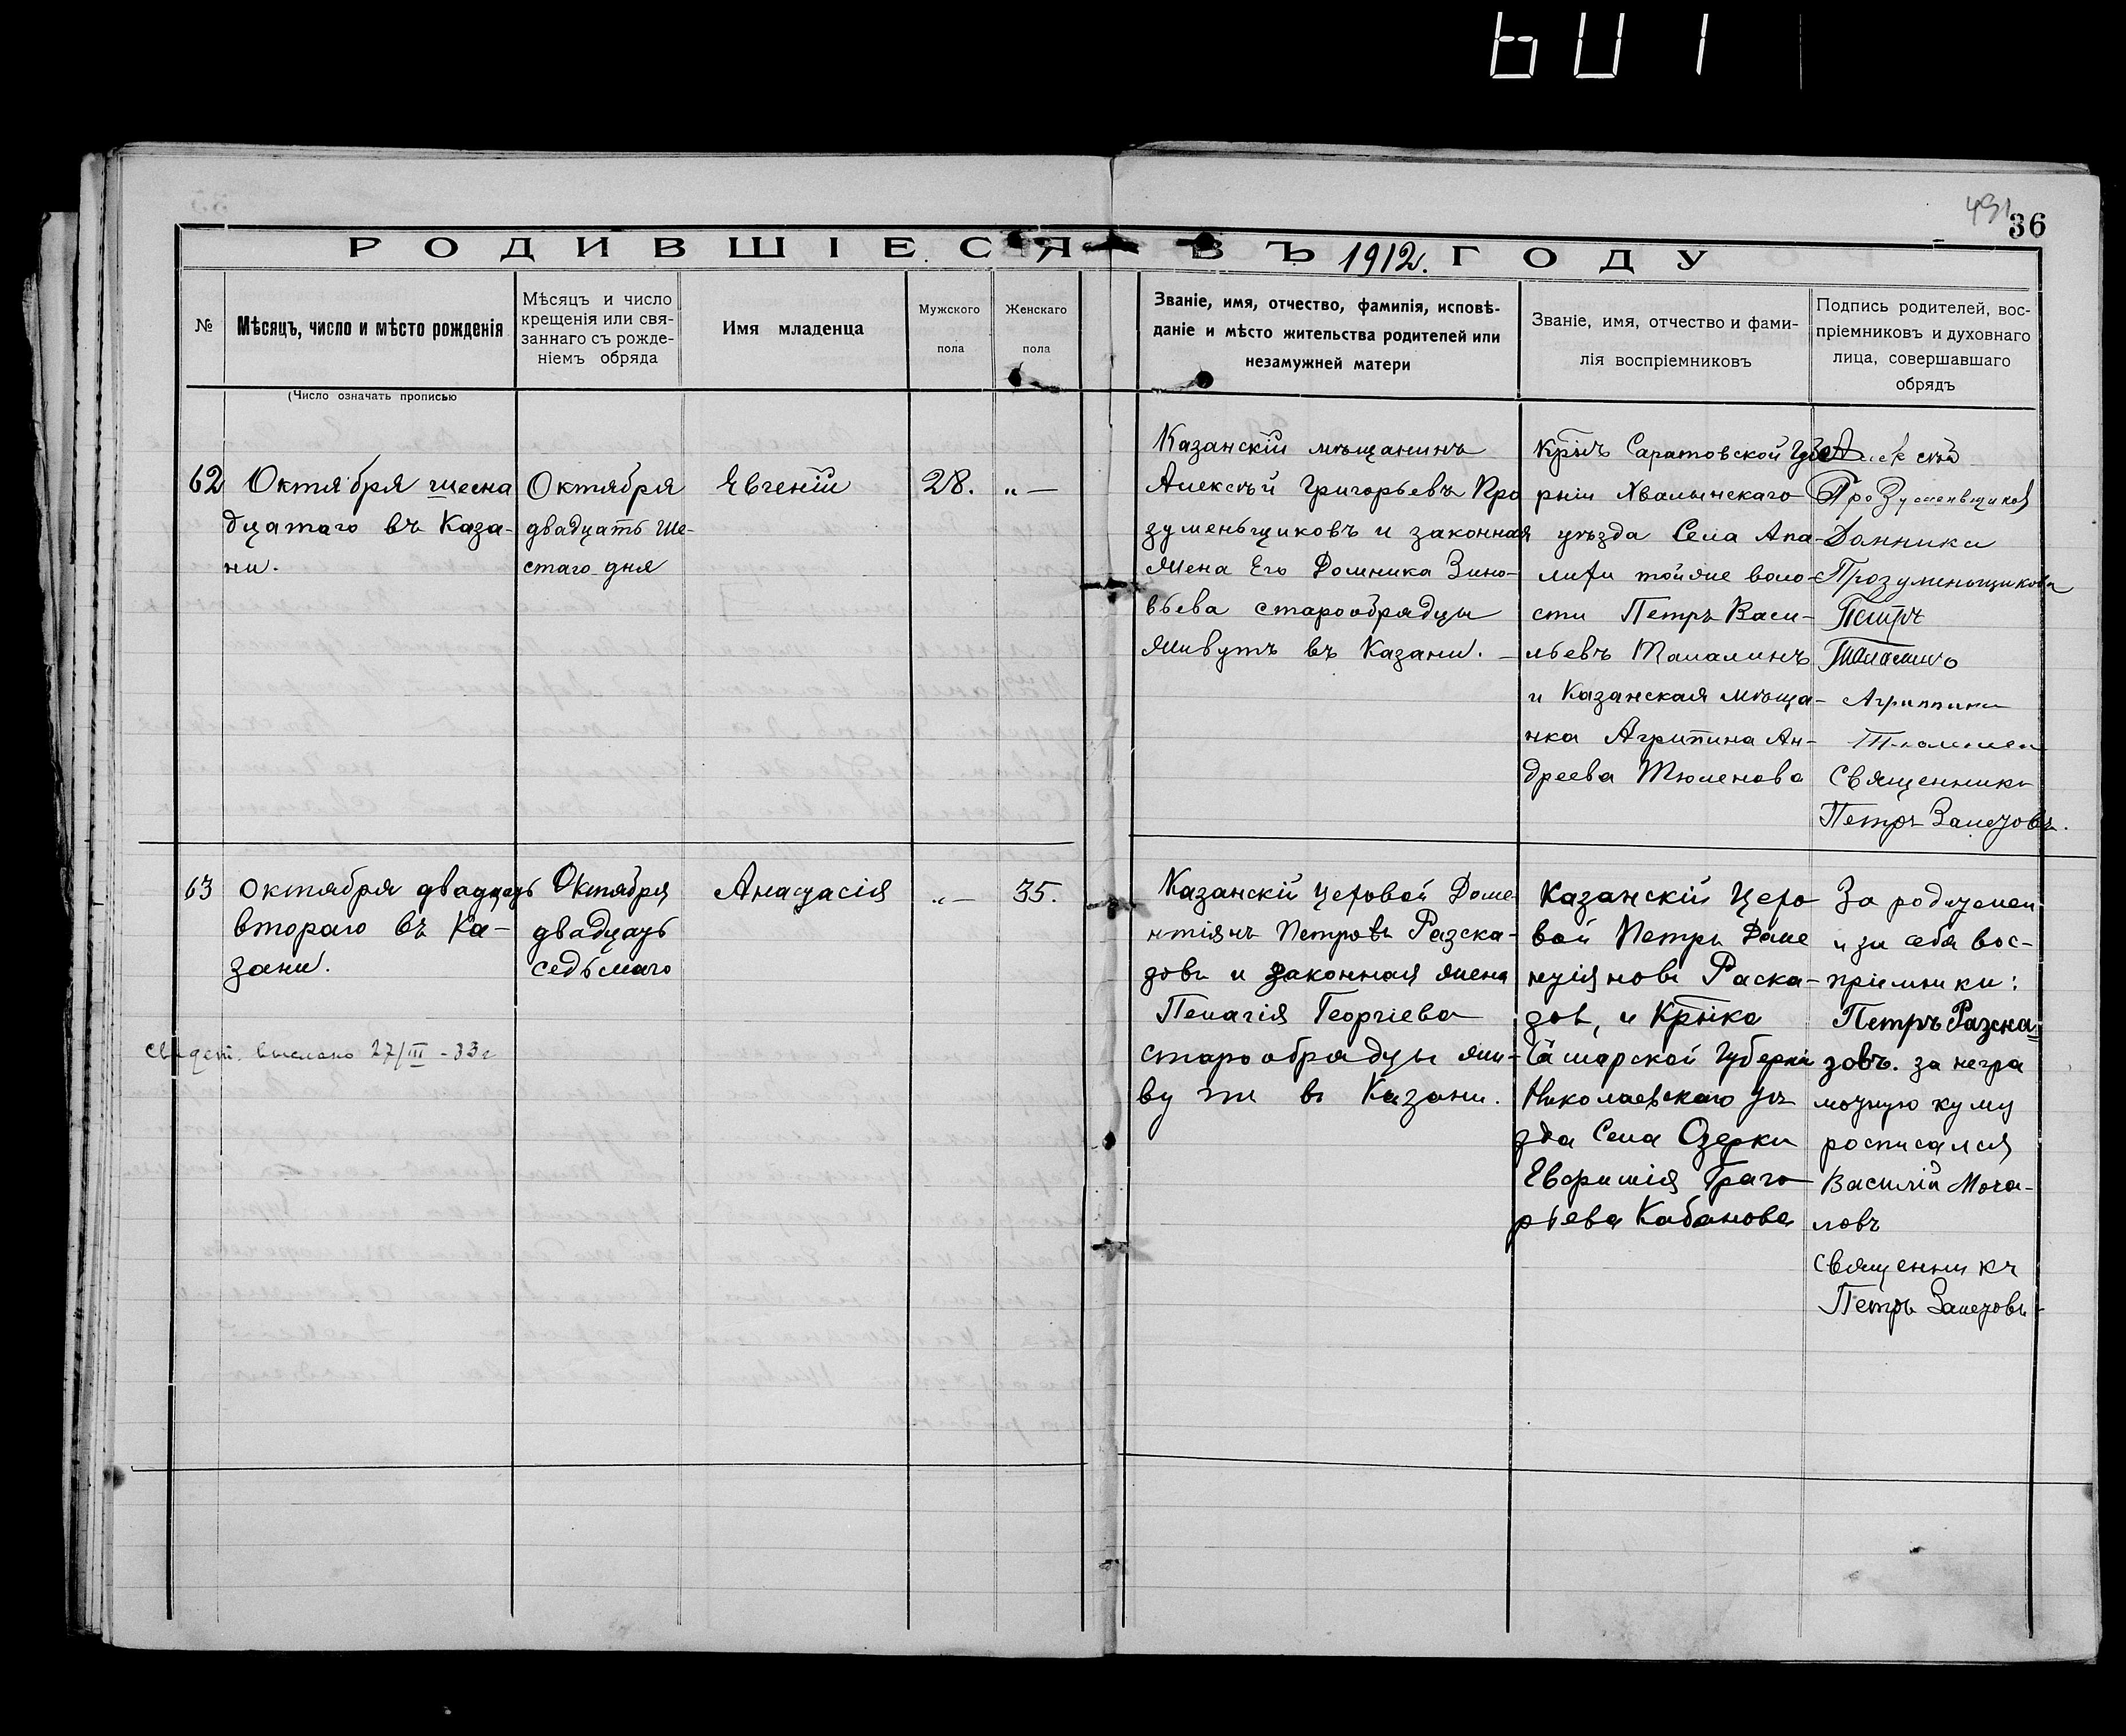 601
491
36
РОДИВШІЕСЯ ВЪ 1912. ГОДУ
№
Мѣсяцъ, число и мѣсто рожденія
(Число означать прописью
Мѣсяцъ и число
крещенія или свя-
заннаго съ рожде-
ніемъ обряда
Имя младенца
Мужского
пола
Женскаго
пола
Званіе, имя, отчество, фамилія, исповѣ-
даніе и мѣсто жительства родителей или
незамужней матери
Званіе, имя, отчество и фами-
лія воспріемниковъ
Подпись родителей, вос-
пріемниковъ и духовнаго
лица, совершавшаго
обрядъ
62
Октября шесна
дцатаго въ Каза-
ни.
Октября
двадцать ше-
стаго дня
Евгеній
28.
„ —
Казанскій мѣщанинъ
Алексѣй Григорьевъ Про
зуменьщиковъ и законная
жена Его Домника Зино-
вьева старообрядцы
живутъ въ Казани. —
Крнъ Саратовской Губе
рніи Хвалынскаго
уѣзда Села Апа-
лихи тойже воло-
сти Петръ Васи-
льевъ Талалинъ
и Казанская мѣща-
нка Агрипина Ан-
дреева Тюленева
Алексѣй
Прозуменьщиков
Домника
Прозуменьщикова
Петръ
Талалинъ
Агриппина
Священникъ
Петръ Залетовъ.
63
октября двадцать
втораго въ Ка-
зани.
Октября
двадцать
седьмаго
Анастасія
„ —
35.
Казанскій Цеховой Доме
нтіянъ Петровъ Разска-
зовъ и законная жена
Пелагія Георгіева
старообрядцы жи-
вутъ въ Казани.
Казанскій Цехо
вой Петръ Доме
нтіяновъ Раска-
зов, и Крнка
Самарской Губерни
Николаевскаго Уѣ
зда Села Озерки
Евфимія Григо
рьева Кабанова
За родителей
и за себя вос-
пріемники:
Петръ Разска-
зовъ. за негра
мотную куму
росписался
Василій Моча-
ловъ
священникъ
Петръ Залетовъ
свидет. выслано 27/III - 33 г